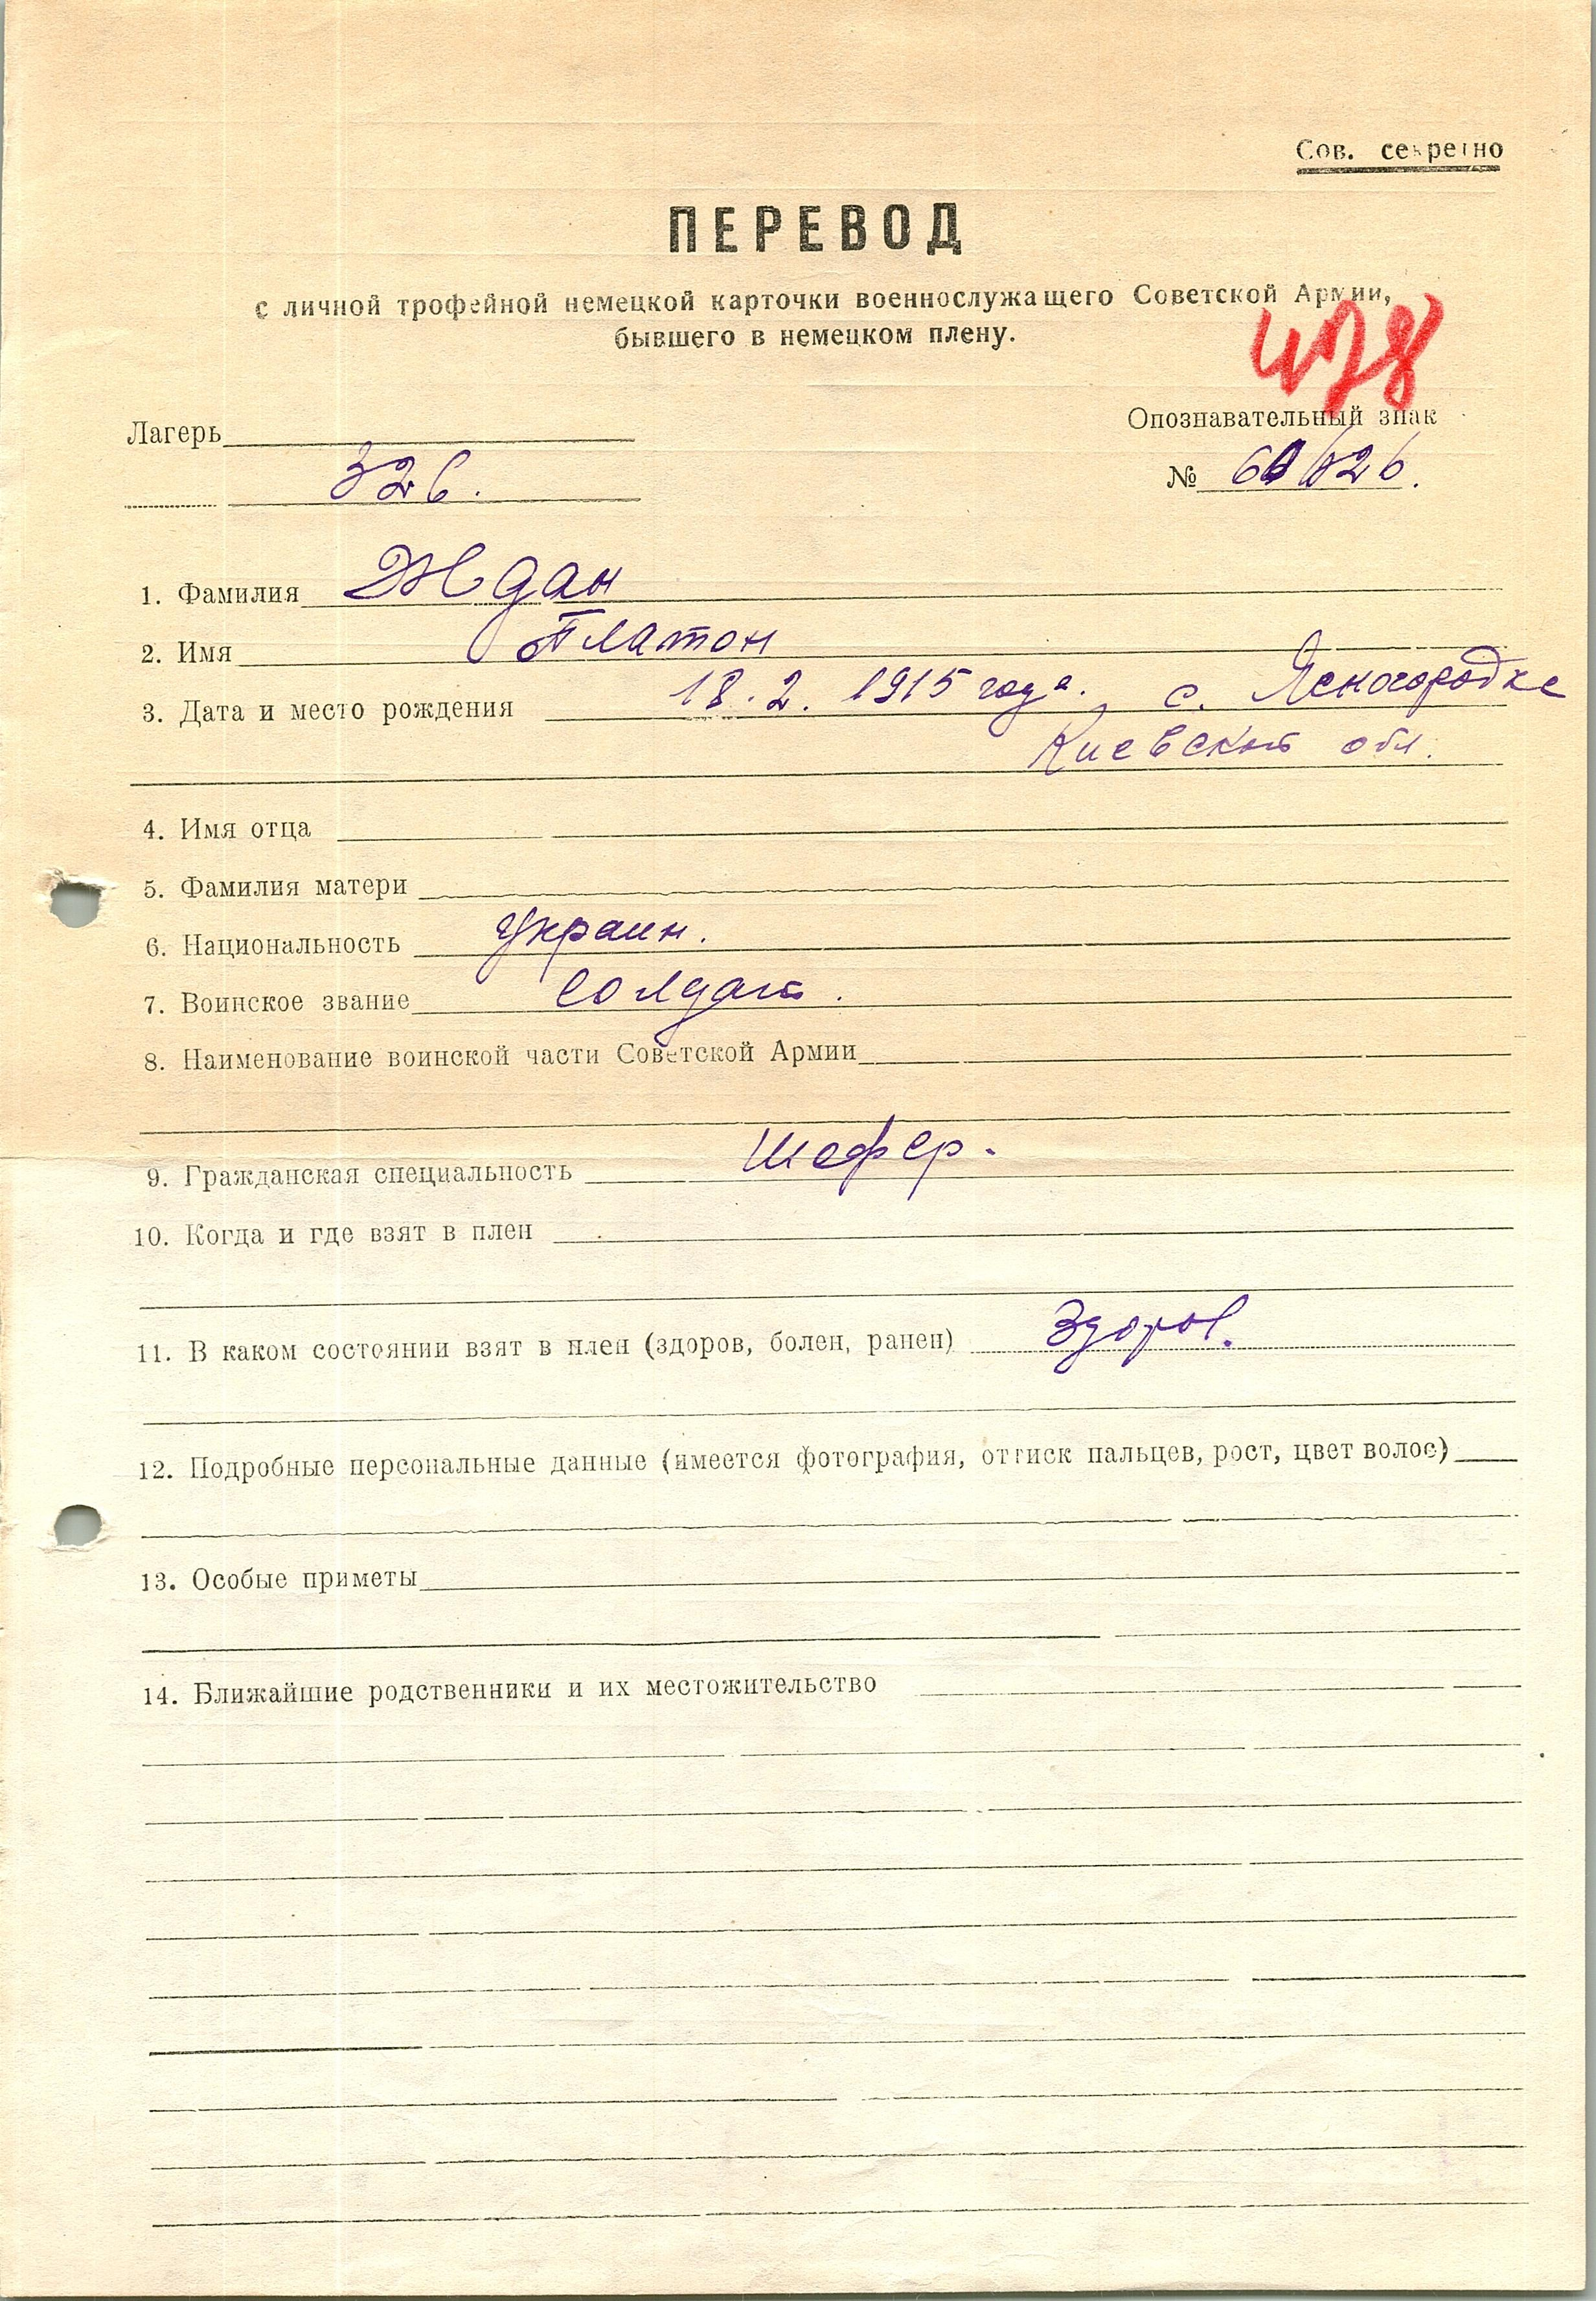 Сов. секретно
ПЕРЕВОД
с личной трофейной немецкой карточки военнослужащего Советской Армии,
бывшего в немецком плену.
478
Лагерь
Опознавательный знак
326.
№
1. Фамилия Ждан
2. Имя Платон
3. Дата и место рождения 18.2. 1915 года. с. Ясногородке
Киевской обл.
4. Имя отца
5. Фамилия матери
6. Национальность Украин.
7. Воинское звание Солдат.
8. Наименование воинской части Советской Армии
9. Гражданская специальность Шофер.
10. Когда и где взят в плен
11. В каком состоянии взят в плен (здоров, болен, ранен) Здоров.
12. Подробные персональные данные (имеется фотография, оттиск пальцев, рост, цвет волос)
13. Особые приметы
14. Ближайшие родственники и их местожительство